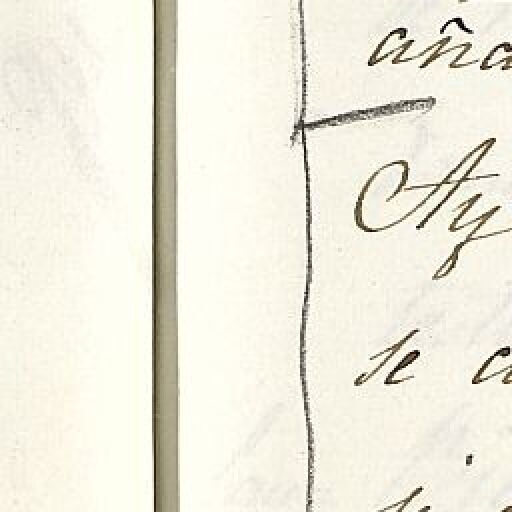 aña
Ay
se c